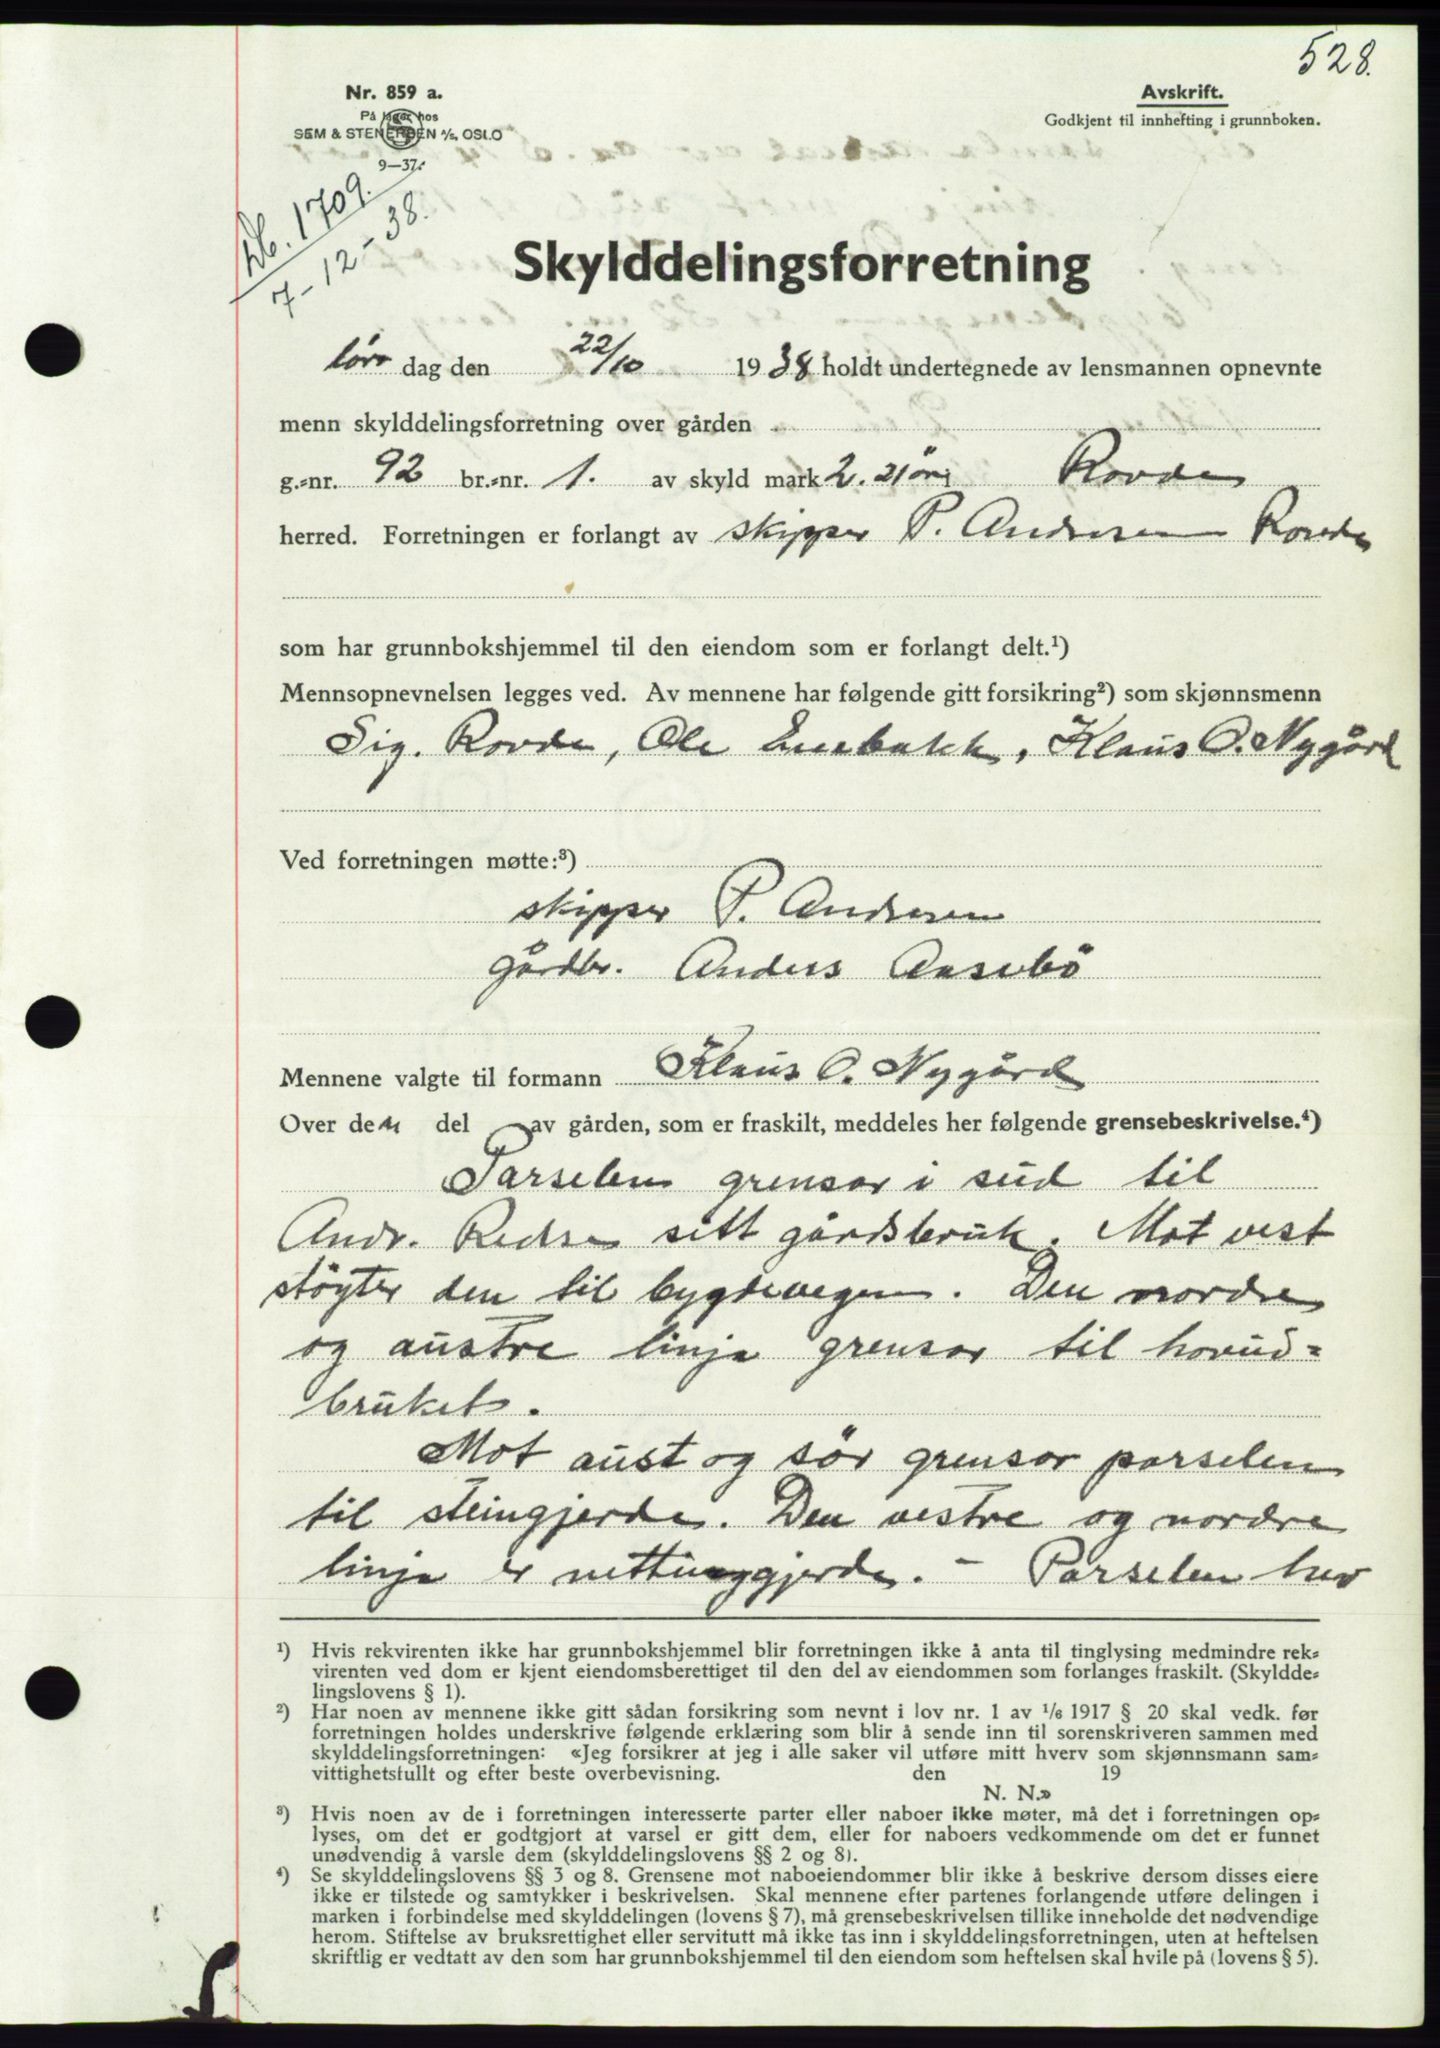 528.
Nr. 859 a.
På lager hos
SEM & STENERSEN A/S, OSLO
9—37.
Avskrift.
Godkjent til innhefting i grunnboken.
Db. 1709.
7-12-38.
Skylddelingsforretning
lørdag den 22/10 1938 holdt undertegnede av lensmannen opnevnte
menn skylddelingsforretning over gården
g.-nr. 92 br.-nr. 1. av skyld mark 2.21 ör i Rovde
herred. Forretningen er forlangt av skipper P. Andresen Rovde
som har grunnbokshjemmel til den eiendom som er forlangt delt.¹)
Mennsopnevnelsen legges ved. Av mennene har følgende gitt forsikring²) som skjønnsmenn
Sig. Rovde, Ole Enebakk, Klaus O. Nygård
Ved forretningen møtte:³)
skipper P. Andresen
gårdbr. Anders Aasebö
Mennene valgte til formann Klaus O. Nygård
Over den del av gården, som er fraskilt, meddeles her følgende grensebeskrivelse.⁴)
Parselen grensar i sud til
Andr. sitt gårdsbruk. Mot vest
stöyter den til bygdevegen. Den nordre
og austre linja grensar til hovud=
bruket.
Mot aust og sör grensar parselen
til steingjerde. Den vestre og nordre
linja er nettinggjerde. — Parselen hev
¹) Hvis rekvirenten ikke har grunnbokshjemmel blir forretningen ikke å anta til tinglysing medmindre rek-
virenten ved dom er kjent eiendomsberettiget til den del av eiendommen som forlanges fraskilt. (Skyldde-
lingslovens § 1).
²) Har noen av mennene ikke gitt sådan forsikring som nevnt i lov nr. 1 av 1/6 1917 § 20 skal vedk. før
forretningen holdes underskrive følgende erklæring som blir å sende inn til sorenskriveren sammen med
skylddelingsforretningen: «Jeg forsikrer at jeg i alle saker vil utføre mitt hverv som skjønnsmann sam-
vittighetsfullt og efter beste overbevisning. den 19
N. N.»
³) Hvis noen av de i forretningen interesserte parter eller naboer ikke møter, må det i forretningen op-
lyses, om det er godtgjort at varsel er gitt dem, eller for naboers vedkommende om det er funnet
unødvendig å varsle dem (skylddelingslovens §§ 2 og 8).
⁴) Se skylddelingslovens §§ 3 og 8. Grensene mot naboeiendommer blir ikke å beskrive dersom disses eiere
ikke er tilstede og samtykker i beskrivelsen. Skal mennene efter partenes forlangende utføre delingen i
marken i forbindelse med skylddelingen (lovens § 7), må grensebeskrivelsen tillike inneholde det nødvendige
herom. Stiftelse av bruksrettighet eller servitutt må ikke tas inn i skylddelingsforretningen, uten at heftelsen
skriftlig er vedtatt av den som har grunnbokshjemmel til den eiendom som heftelsen skal hvile på (lovens § 5).